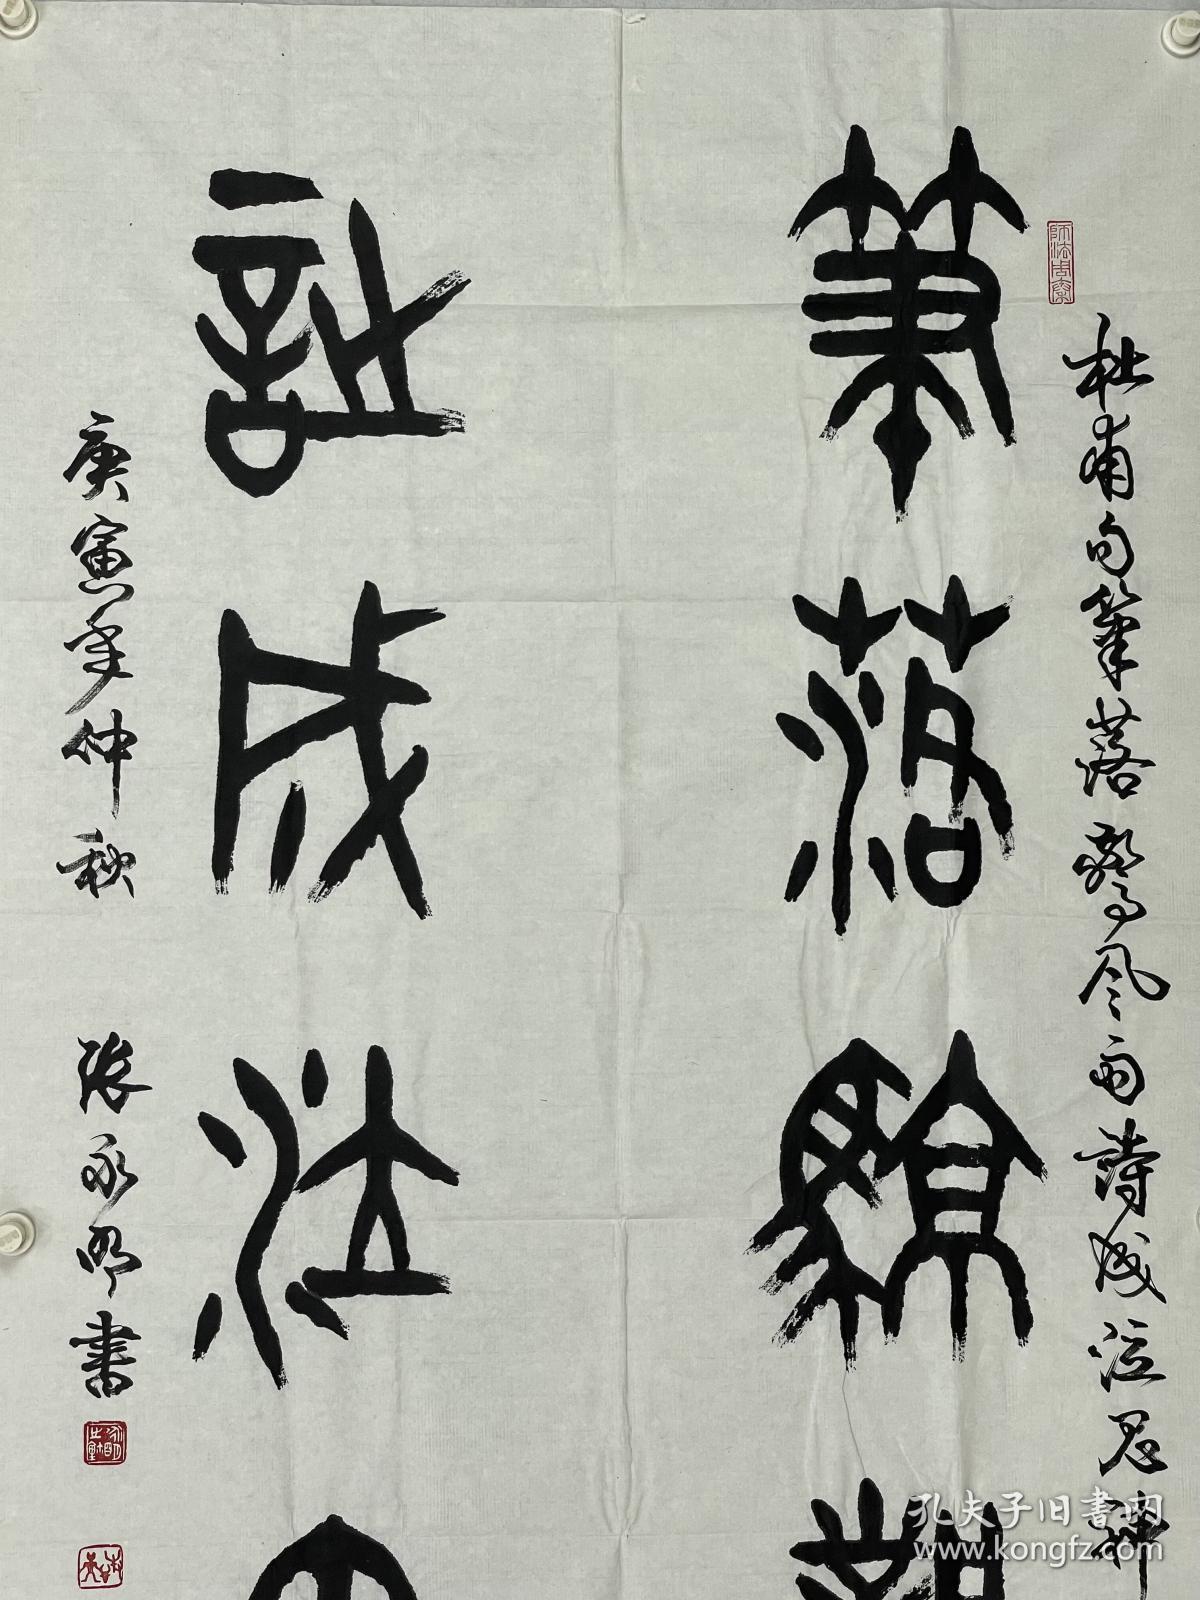 杜甫句筆落驚風雨詩成泣鬼神
筆落驚
詩成泣
庚寅年仲秋
張永明書
孔夫子旧書网
www.kongfz.com